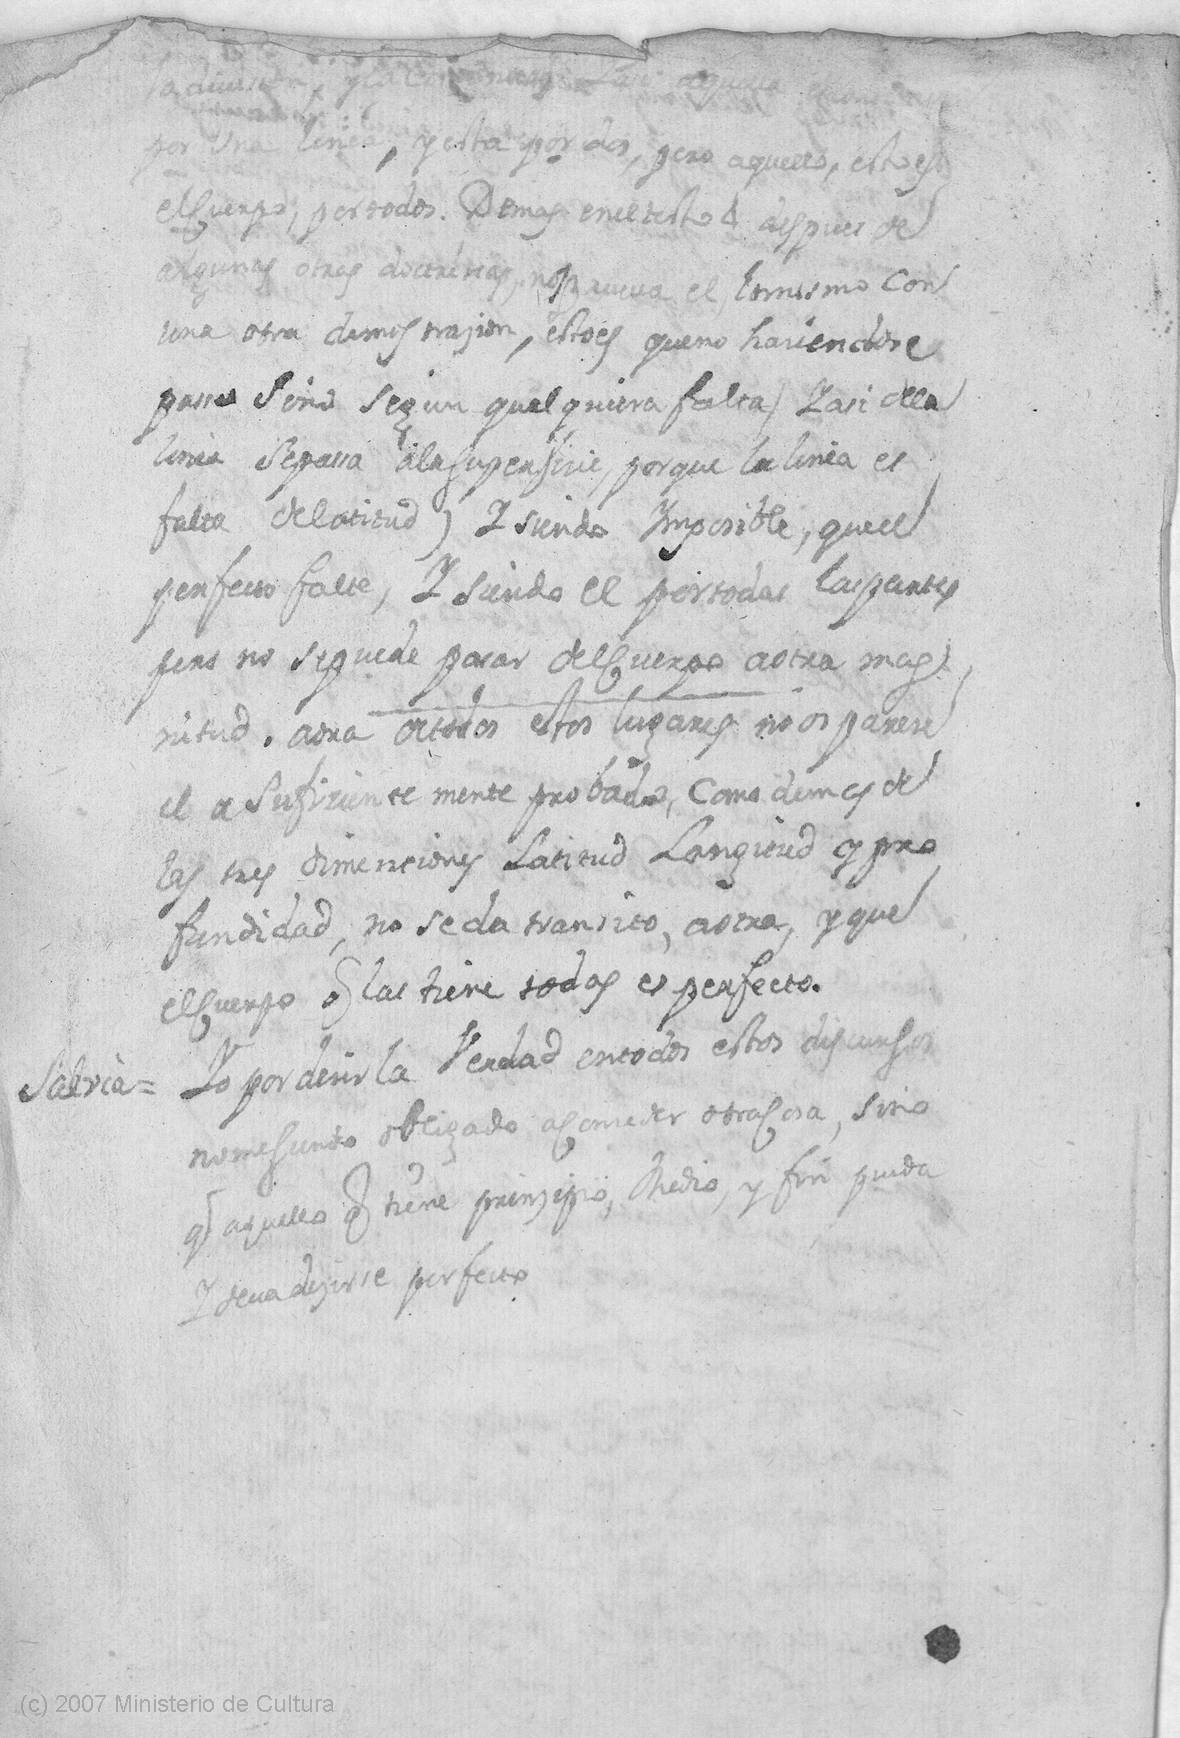 la division, y la
por Una linea, y esta por dos, pero aquello, esto es
el Cuerpo, por todos. Demas en el testo 4 despues de
algunas otras doctrinas, no prueva el lo mismo Con
una otra demostrasion, esto es que no haviendose
passo Sino segun qualquiera falta) Y asi de la
linia se passa a la superfizie, porque la linia es
falta de latitud) Y siendo Ymposible, que el
perfecto falte, Y siendo el por todas las partes
pero no se puede pasar del Cuerpo a otra mag
nitud. aora de todos estos lugares no os parese
el a Sufizientemente probado, Como demas de
las tres dimensiones Latitud Longitud y pro
fundidad, no se da transito, a otra, y que
el Cuerpo q̃ las tiene todas es perfecto.
Salvia= Yo por desir la Verdad en todos estos discursos
no me siento obligado a Conseder otra Cosa, sino
q̃ aquello q̃ tiene prinzipio, Medio, y fin pueda
Y deva dezirse perfecto
(c) 2007 Ministerio de Cultura